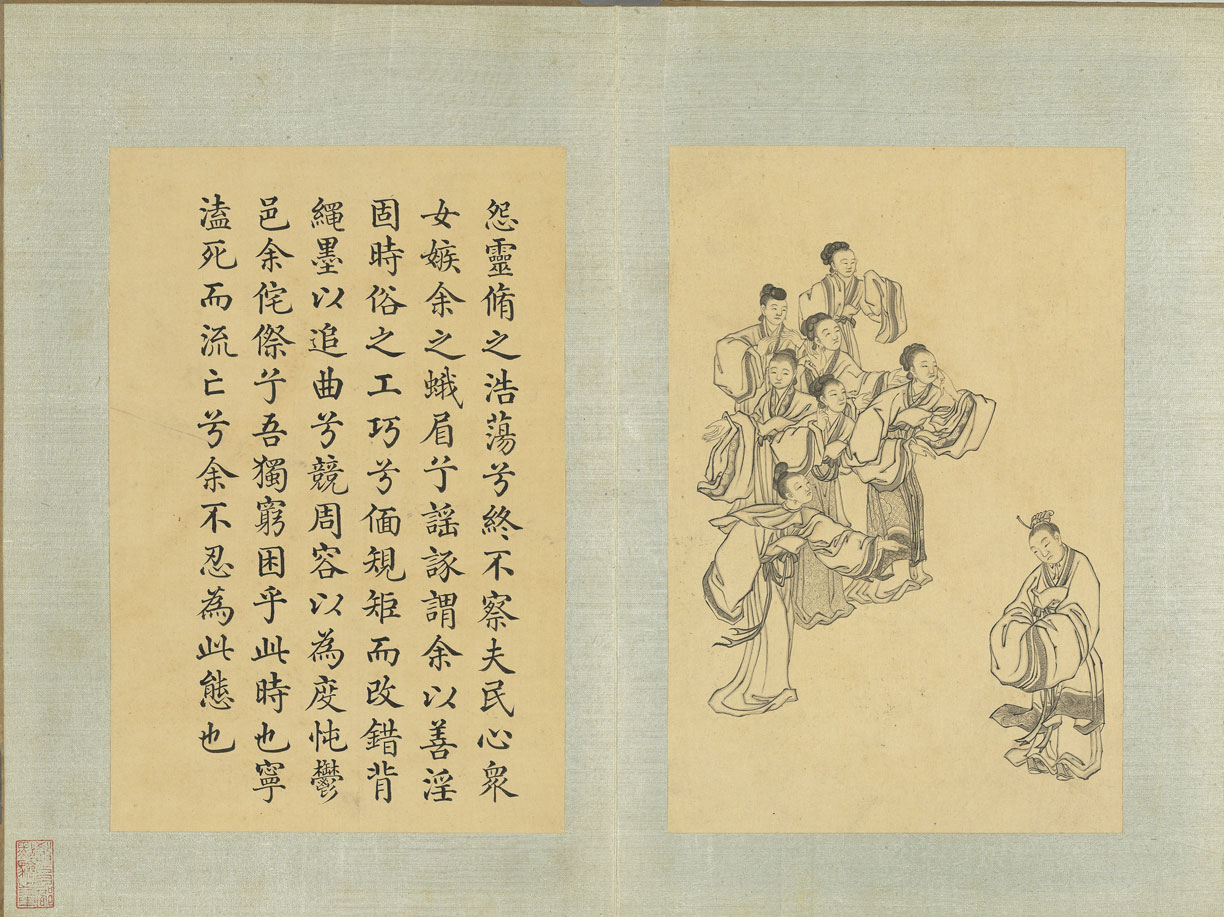 怨靈脩之浩蕩兮終不察夫民心衆
女嫉余之蛾眉兮謠諑謂余以善淫
固時俗之工巧兮偭規矩而改錯背
繩墨以追曲兮競周容以為度忳鬱
邑余侘傺兮吾獨窮困乎此時也寧
溘死而流亡兮余不忍為此態也